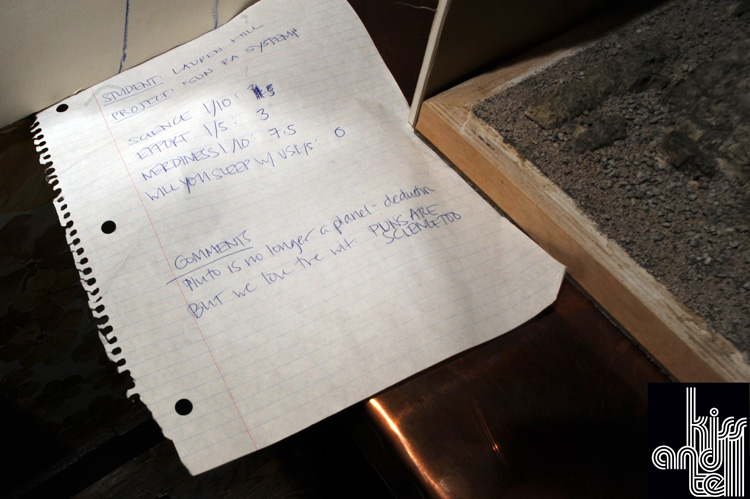 STUDENT: LAUREN HILL
PROJECT: SUN RA SYSTEMP
SCIENCE 1/10: 5
EFFORT 1/5: 3
NERDINESS 1/10: 7.5
WILL YOU SLEEP W/ US 1/5: 0
COMMENTS
Pluto is no longer a planet - deduction
But we love the wit PUNS ARE
SCIENCE TOO
kiss
and
tell